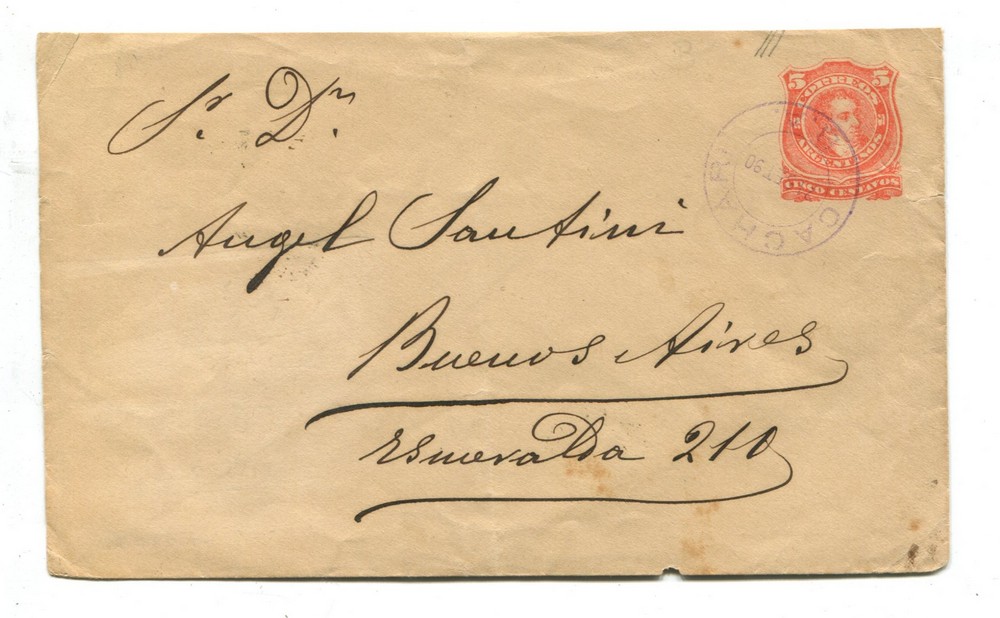 Sr. Dn
Angel Santini
Buenos Aires
Esmeralda 210
5 5
CORREOS
5 5
ARGENTINOS
CINCO CENTAVOS
CACHARI
90